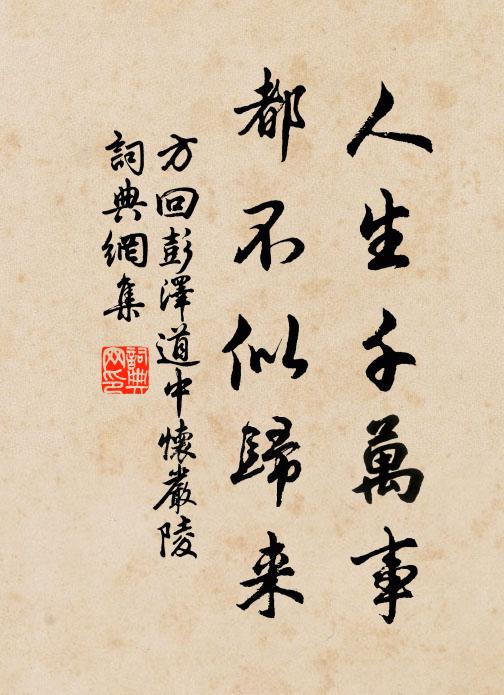 人生千萬事
都不似歸来
方回彭澤道中懷嚴陵
詞典網集
詞典网印